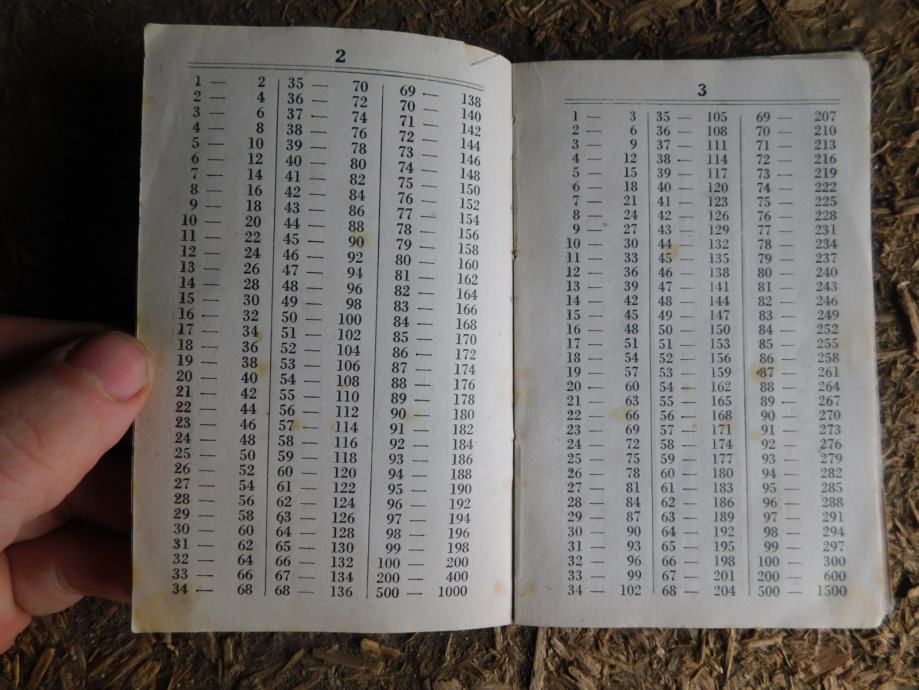 2
1 — 2 35 — 70 69 — 138
2 — 4 36 — 72 70 — 140
3 — 6 37 — 74 71 — 142
4 — 8 38 — 76 72 — 144
5 — 10 39 — 78 73 — 146
6 — 12 40 — 80 74 — 148
7 — 14 41 — 82 75 — 150
8 — 16 42 — 84 76 — 152
9 — 18 43 — 86 77 — 154
10 — 20 44 — 88 78 — 156
11 — 22 45 — 90 79 — 158
12 — 24 46 — 92 80 — 160
13 — 26 47 — 94 81 — 162
14 — 28 48 — 96 82 — 164
15 — 30 49 — 98 83 — 166
16 — 32 50 — 100 84 — 168
17 — 34 51 — 102 85 — 170
18 — 36 52 — 104 86 — 172
19 — 38 53 — 106 87 — 174
20 — 40 54 — 108 88 — 176
21 — 42 55 — 110 89 — 178
22 — 44 56 — 112 90 — 180
23 — 46 57 — 114 91 — 182
24 — 48 58 — 116 92 — 184
25 — 50 59 — 118 93 — 186
26 — 52 60 — 120 94 — 188
27 — 54 61 — 122 95 — 190
28 — 56 62 — 124 96 — 192
29 — 58 63 — 126 97 — 194
30 — 60 64 — 128 98 — 196
31 — 62 65 — 130 99 — 198
32 — 64 66 — 132 100 — 200
33 — 66 67 — 134 200 — 400
34 — 68 68 — 136 500 — 1000
3
1 — 3 35 — 105 69 — 207
2 — 6 36 — 108 70 — 210
3 — 9 37 — 111 71 — 213
4 — 12 38 — 114 72 — 216
5 — 15 39 — 117 73 — 219
6 — 18 40 — 120 74 — 222
7 — 21 41 — 123 75 — 225
8 — 24 42 — 126 76 — 228
9 — 27 43 — 129 77 — 231
10 — 30 44 — 132 78 — 234
11 — 33 45 — 135 79 — 237
12 — 36 46 — 138 80 — 240
13 — 39 47 — 141 81 — 243
14 — 42 48 — 144 82 — 246
15 — 45 49 — 147 83 — 249
16 — 48 50 — 150 84 — 252
17 — 51 51 — 153 85 — 255
18 — 54 52 — 156 86 — 258
19 — 57 53 — 159 87 — 261
20 — 60 54 — 162 88 — 264
21 — 63 55 — 165 89 — 267
22 — 66 56 — 168 90 — 270
23 — 69 57 — 171 91 — 273
24 — 72 58 — 174 92 — 276
25 — 75 59 — 177 93 — 279
26 — 78 60 — 180 94 — 282
27 — 81 61 — 183 95 — 285
28 — 84 62 — 186 96 — 288
29 — 87 63 — 189 97 — 291
30 — 90 64 — 192 98 — 294
31 — 93 65 — 195 99 — 297
32 — 96 66 — 198 100 — 300
33 — 99 67 — 201 200 — 600
34 — 102 68 — 204 500 — 1500